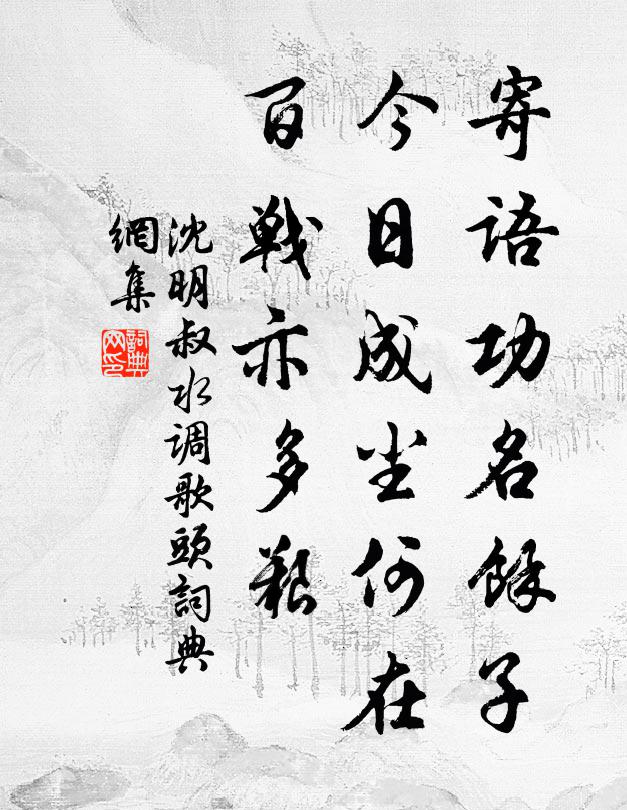 寄語功名餘子
今日成尘何在
百戰亦多艱
沈明叔水调歌頭詞典
網集
詞典
网印